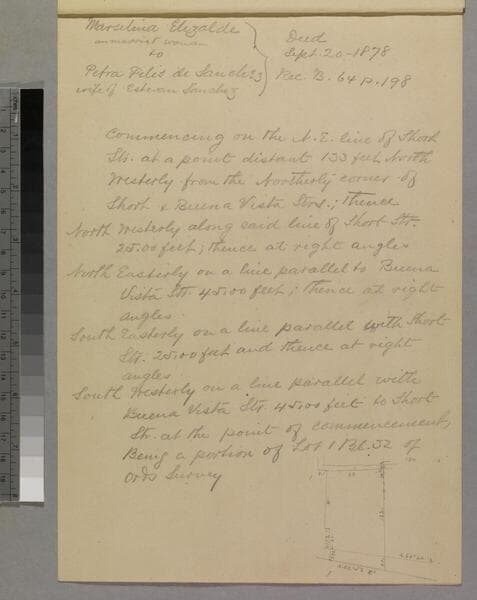 Marselina Elizalde
unmarried woman
to
Petra Felis de Sanchez
wife of Estevan Sanchez
Deed
Sept. 20-1878
Rec B. 64 p. 198
Commencing on the N. E. line of Short
Str. at a point distant 133 feet North
Westerly from the Northerly corner of
Short & Buena Vista Strs.; thence
North Westerly along said line of Short Str.
25.00 feet; thence at right angles
North Easterly on a line parallel to Buena
Vista Str. 45.00 feet; thence at right
angles.
South Easterly on a line parallel with Short
Str. 25.00 feet and thence at right
angles
South Westerly on a line parallel with
Buena Vista Str. 45.00 feet to Short
Str. at the point of commencement,
Being a portion of Lot 1 Bl. 32 of
Ords Survey